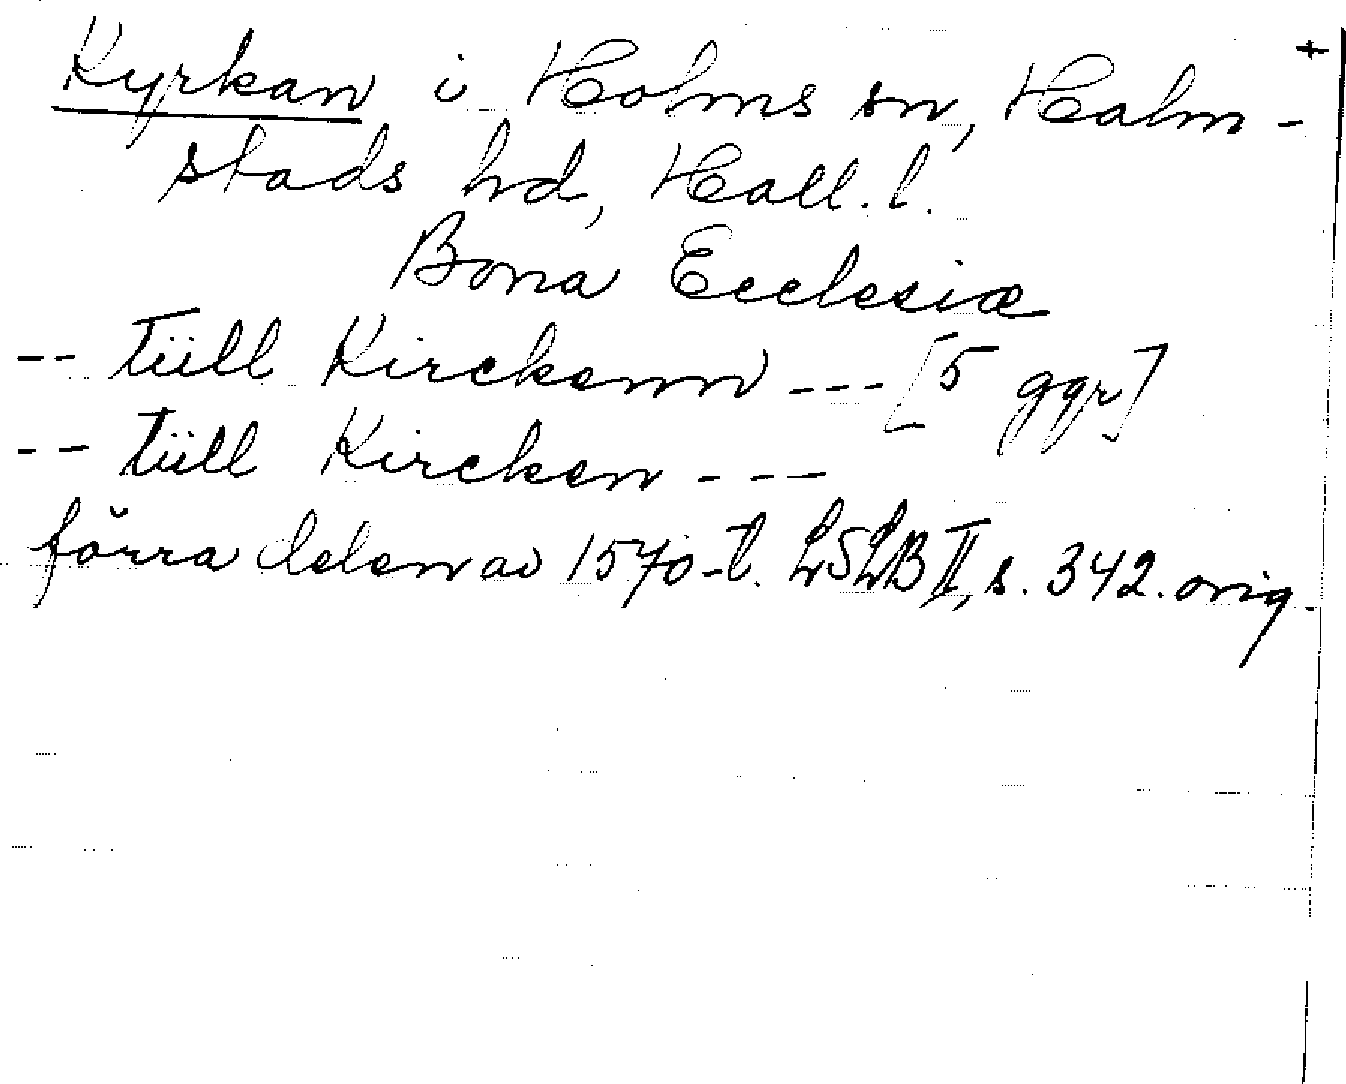 Kyrkan i Holms sn, Halm- +
stads hd, Hall. l.
Bona Ecclesiæ
-- tüll Kirckenn --- [5 ggr]
-- tüll Kircken ---
förra delen av 1570-t. LSLB II, s. 342. orig.